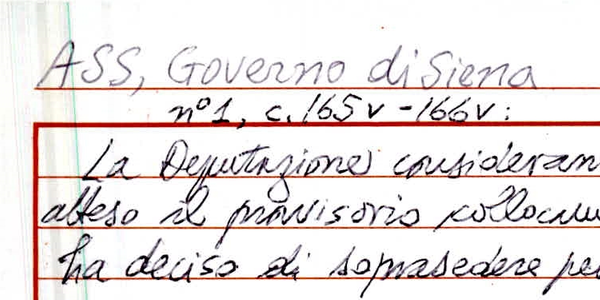 ASS, Governo di Siena
n° 1, c. 165v - 166v:
La Deputazione consideran
atteso il provvisorio collocam
ha deciso di soprasedere per